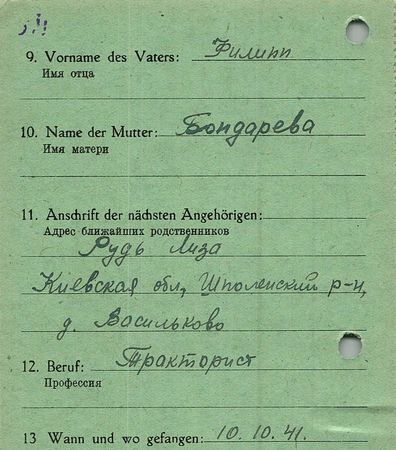 9. Vorname des Vaters: Филипп
Имя отца
10. Name der Mutter: Бондарева
Имя матери
11. Anschrift der nächsten Angehörigen:
Адрес ближайших родственников
Рудь Лиза
Киевская обл, Шполенский р-н,
д. Васильково
12. Beruf: Тракторист
Профессия
13 Wann und wo gefangen: 10.10.41.